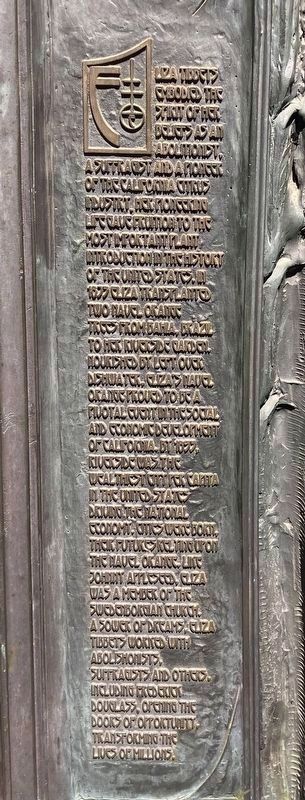 ELIZA TIBBETS
EMBODIED THE
SPIRIT OF HER
BELIEFS AS AN
ABOLITIONIST,
A SUFFRAGIST AND A PIONEER
OF THE CALIFORNIA CITRUS
INDUSTRY, HER PIONEERING
LIFE GAVE FRUITION TO THE
MOST IMPORTANT PLANT
INTRODUCTION IN THE HISTORY
OF THE UNITED STATES. IN
ELIZA TRANSPLANTED
TWO NAVEL ORANGE
TREES FROM BAHIA, BRAZIL
TO HER RIVERSIDE GARDEN
NOURISHED BY LEFT OVER
DISHWATER, ELIZA'S NAVEL
ORANGE PROVED TO BE A
PIVOTAL EVENT IN THE SOCIAL
AND ECONOMIC DEVELOPMENT
OF CALIFORNIA. BY
RIVERSIDE WAS THE
WEALTHIEST CITY PER CAPITA
IN THE UNITED STATES
DRIVING THE NATIONAL
ECONOMY. CITIES WERE BORN,
THEIR FUTURES RELYING UPON
THE NAVEL ORANGE. LIKE
JOHNNY APPLESEED, ELIZA
WAS A MEMBER OF THE
SWEDENBORGIAN CHURCH.
A SOWER OF DREAMS, ELIZA
TIBBETS WORKED WITH
ABOLISHONISTS,
SUFFRAGISTS AND OTHERS,
INCLUDING FREDERICK
DOUGLASS, OPENING THE
DOORS OF OPPORTUNITY,
TRANSFORMING THE
LIVES OF MILLIONS.